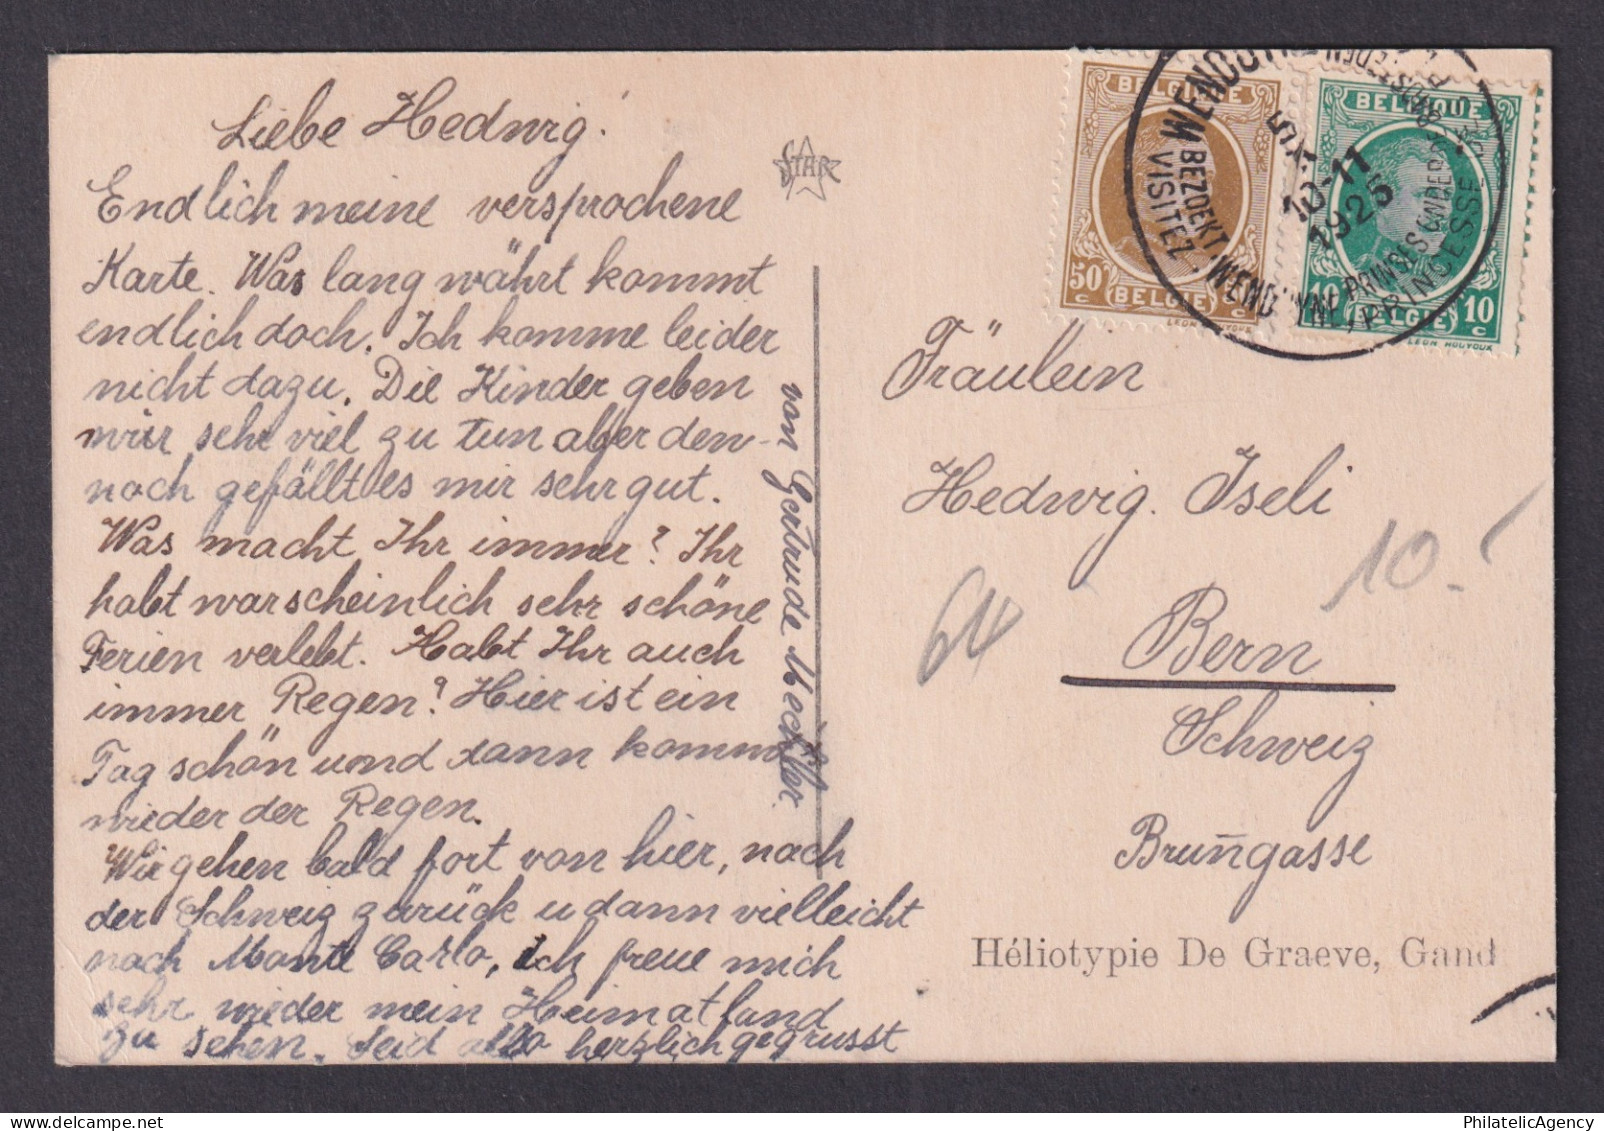 Liebe Hedwig!
Endlich meine versprochene
Karte. Was lang währt kommt
endlich doch. Ich komme leider
nicht dazu. Die Kinder geben
mir sehr viel zu tun aber den-
noch gefällt es mir sehr gut.
Was macht Ihr immer? Ihr
habt warscheinlich sehr schöne
Ferien verlebt. Habt Ihr auch
immer Regen? Hier ist ein
Tag schön und dann kommt
wieder der Regen.
Wir gehen bald fort von hier, nach
der Schweiz zurück u dann vielleicht
nach Monte Carlo, ich freue mich
sehr wieder mein Heimatland
zu sehen. Seid alle herzlich gegrüsst
von Gertrude Mechler
STAR
BELGIQUE
50 c
BELGIE
LEON HOUYOUX
BELGIQUE
10 c 10 c
BELGIE
LEON HOUYOUX
10-11
1925
BEZOEKT WEND YNE, PRINSES
VISITEZ PRINCESSE
Fräulein
Hedwig. Iseli
Bern
Schweiz
Bruñgasse
64
10.-
Héliotypie De Graeve, Gand
PhilatelicAgency